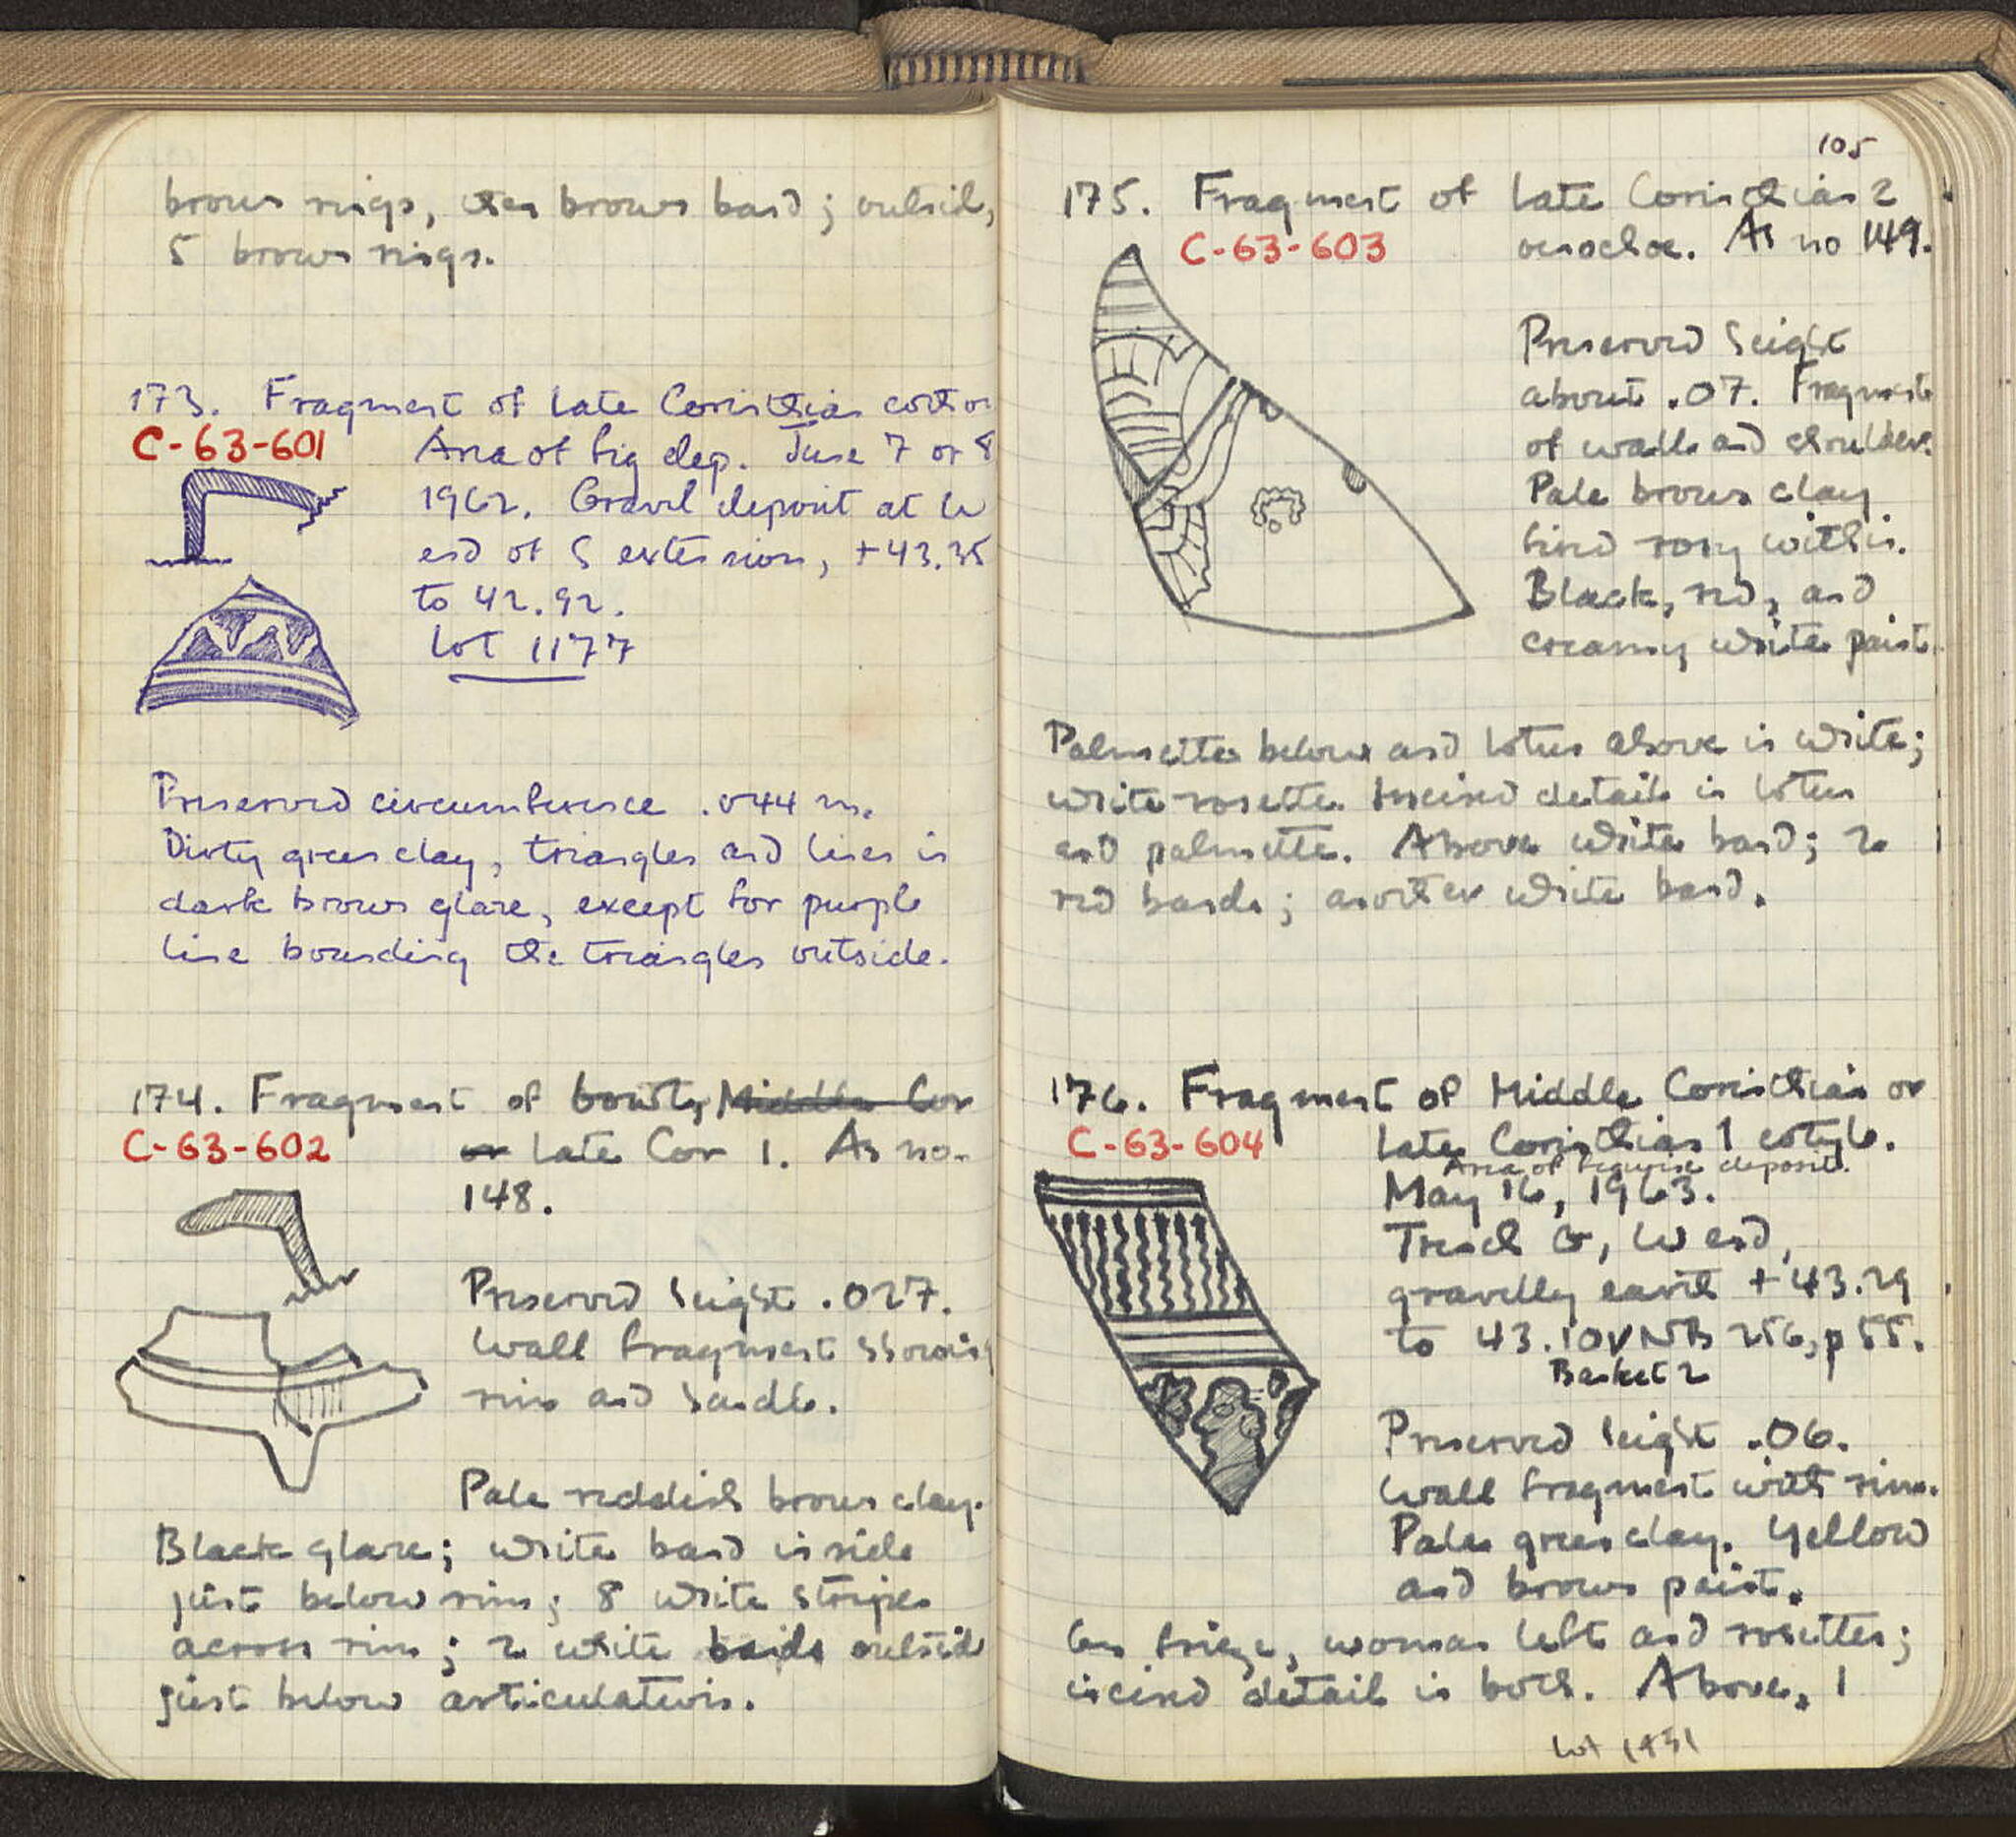 brown rings, then brown band; outside,
5 brown rings.
173. Fragment of Late Corinthian
C-63-601
Area of fig dep. June 7 or 8
1962. Gravel deposit at W
end of S extension, +43.35
to 42.92.
Lot 1177
Preserved circumference .044 m.
Dirty green clay, triangles and lines in
dark brown glaze, except for purple
line bounding the triangles outside.
174. Fragment of bowl, Middle Cor
C-63-602
or Late Cor 1. As no.
148.
Preserved height .027.
Wall fragment showing
rim and handle.
Pale reddish brown clay.
Black glaze; white band inside
just below rim; 8 white stripes
across rim; 2 white bands outside
just below articulation.
105
175. Fragment of Late Corinthian 2
C-63-603
oenochoe. As no 149.
Preserved height
about .07. Fragments
of wall and shoulder.
Pale brown clay
fired rosy within.
Black, red, and
creamy white paint.
Palmettes below and lotus above in white;
white rosette. Incised details in lotus
and palmette. Above white band; 2
red bands; another white band.
176. Fragment of Middle Corinthian or
C-63-604
Late Corinthian 1 cotyle.
Area of figurine deposit.
May 16, 1963.
Trench G, W end,
gravelly earth +43.29
to 43.10 NB 256, p 55.
Basket 2
Preserved height .06.
Wall fragment with rim.
Pale green clay. Yellow
and brown paint.
frieze, woman left and rosettes;
incised detail in both. Above, 1